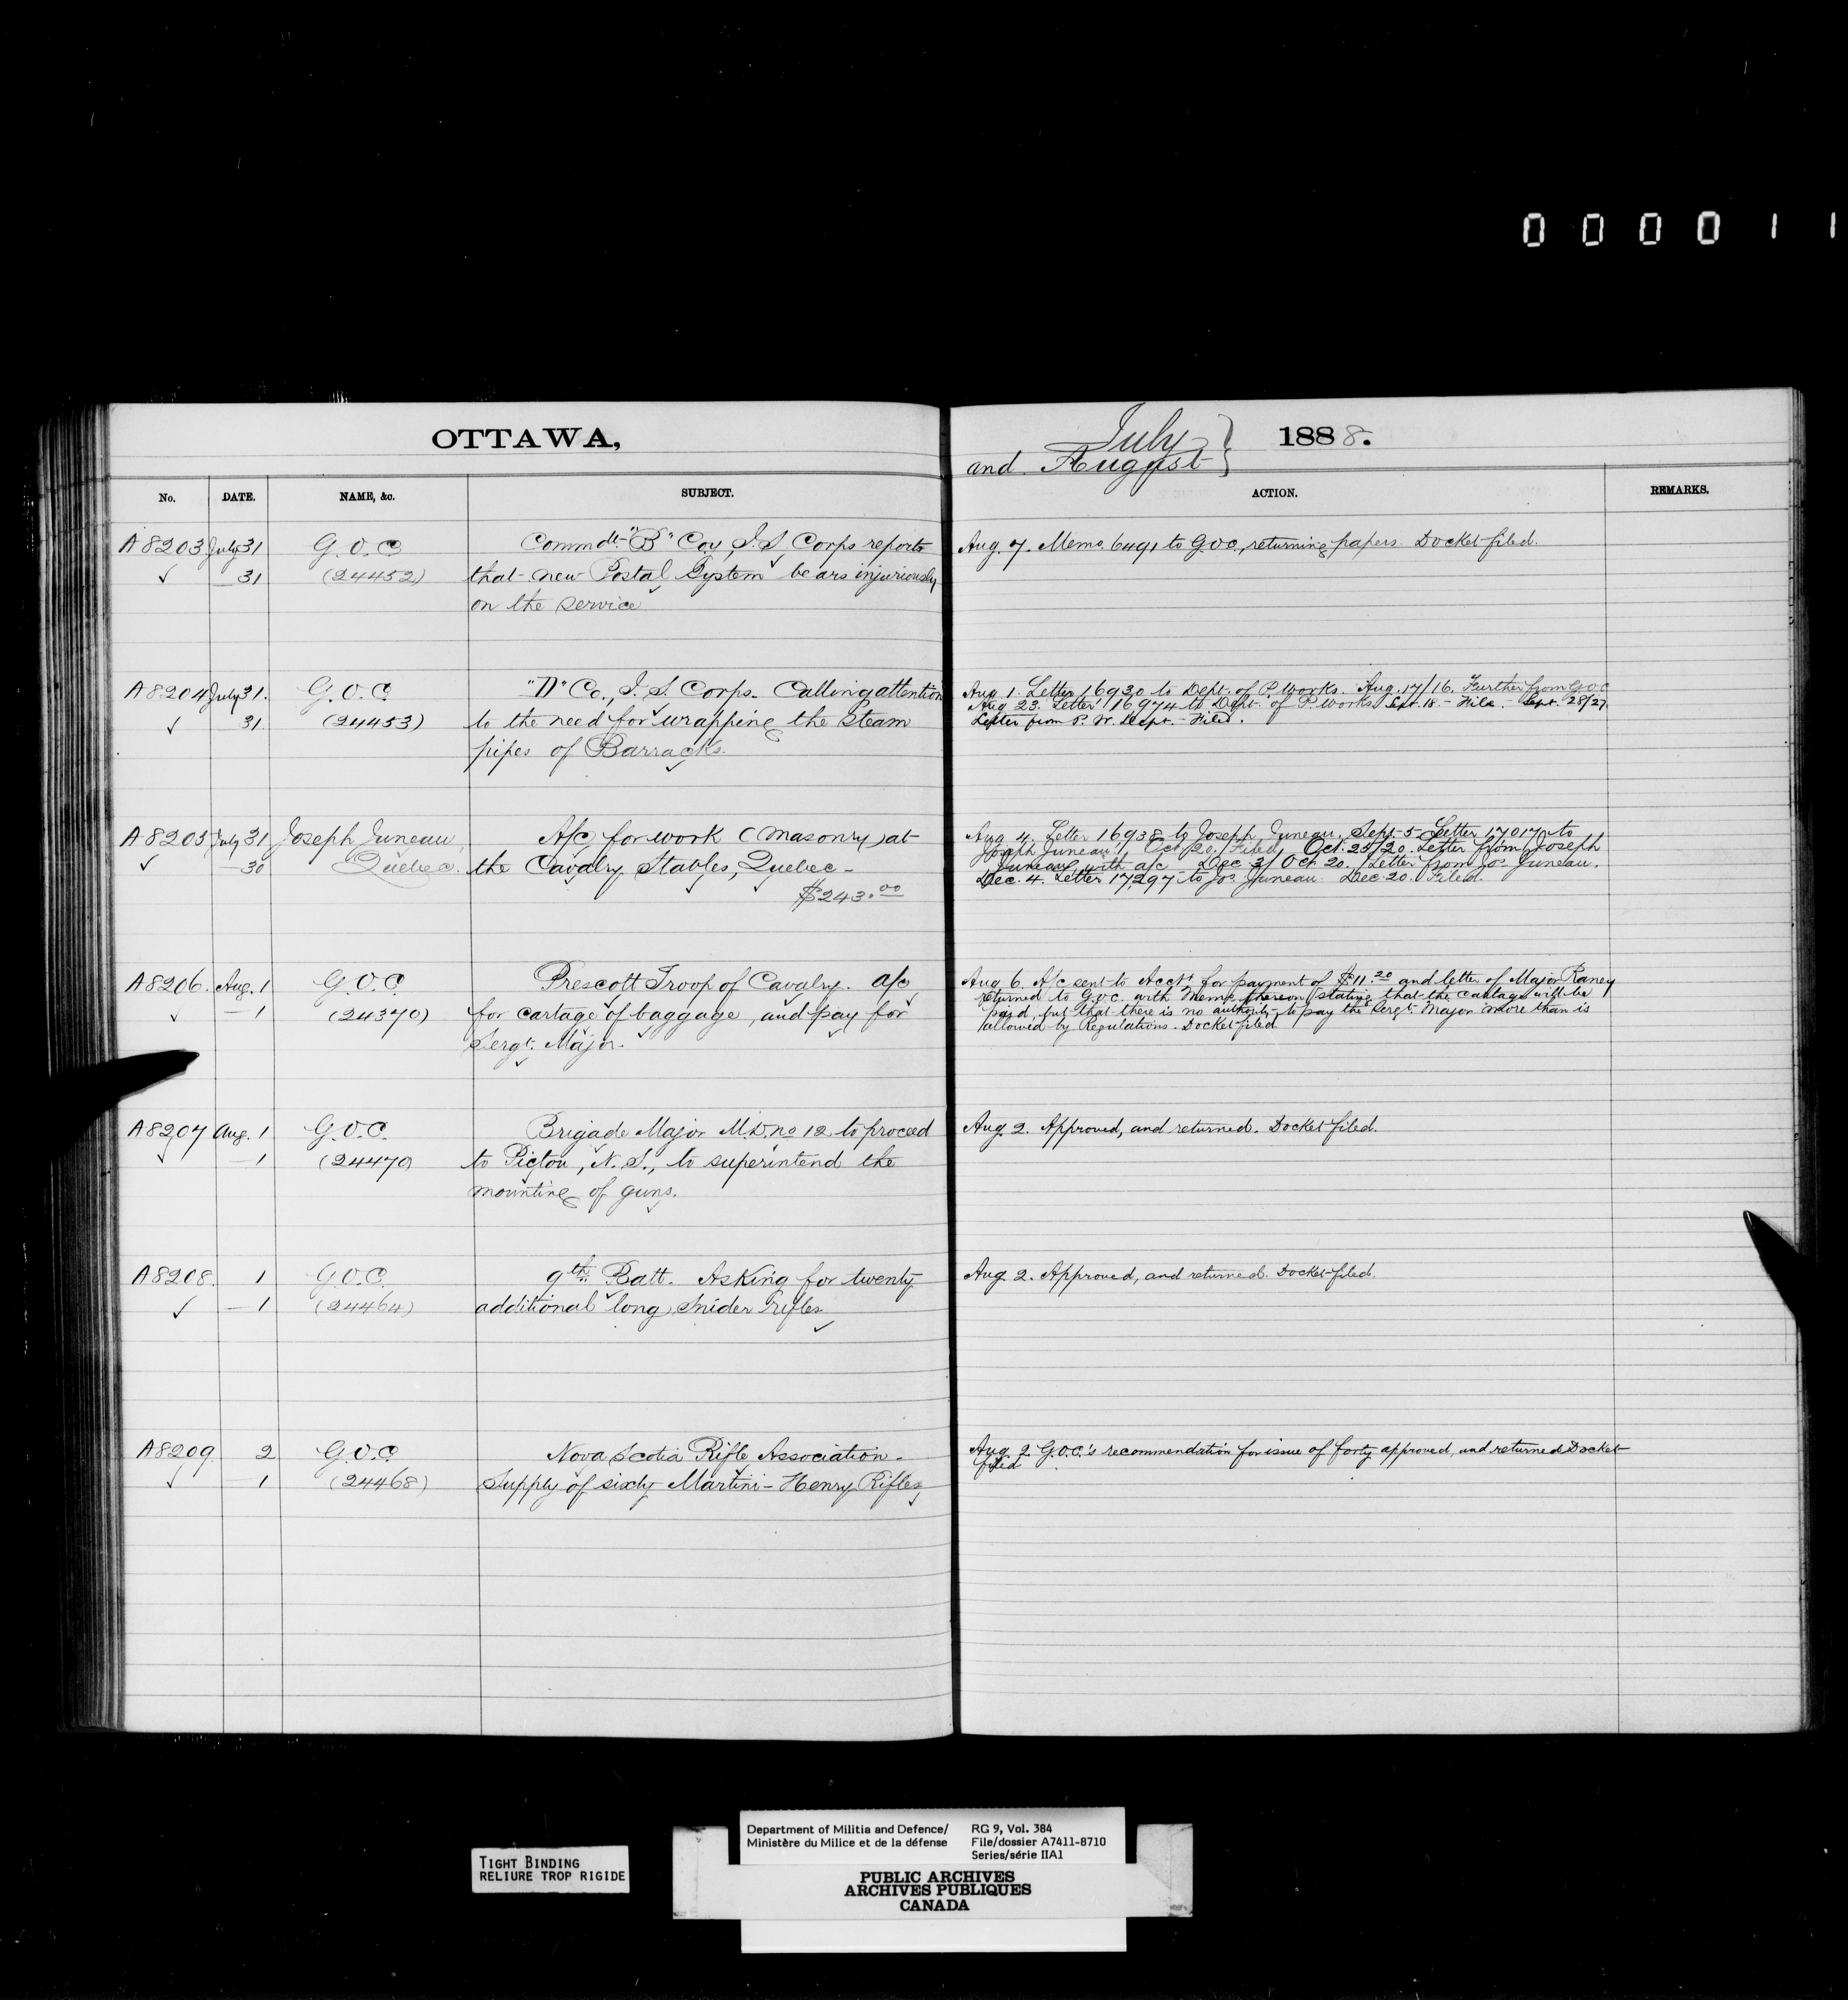 000011
OTTAWA,
July
and August } 1888.
No. DATE. NAME, &c. SUBJECT. ACTION. REMARKS.
A8203 July 31 G.O.C Commdt "B" Coy, I.S. Corps reports
✓ — 31 (24452) that new Postal System bears injuriously
on the service
Aug. 7. Memo. 6491 to G.O.C., returning papers. Docket filed.
A8204 July 31. G.O.C "D" Co., I.S. Corps. Calling attention
✓ 31. (24453) to the need for wrapping the steam
pipes of Barracks.
Aug 1. Letter 16930 to Dept. of P. Works. Aug. 17/16. Further from G.O.C
Aug 23. Letter 16974 to Dept. of P. Works. Sept. 18. - File. - Sept. 28/27
Letter from P. W. Dept. - Filed.
A8205 July 31 Joseph Juneau, A/c for work (masonry) at
✓ 30 Quebec. the Cavalry Stables, Quebec -
$243.00
Aug 4. Letter 16938 to Joseph Juneau. Sept. 5 - Letter 17017 to
Joseph Juneau. Oct. 20. Filed. Oct. 25/20. Letter from Joseph
Juneau, with a/c - Dec. 3/Oct. 20. Letter from Jos. Juneau.
Dec. 4. Letter 17,297 to Jos. Juneau. Dec. 20. Filed.
A8206. Aug. 1 G.O.C Prescott Troop of Cavalry. a/c
✓ — 1 (24370) for cartage of baggage, and pay for
Sergt. Major.
Aug 6. A/c sent to Acct. for payment of $11.20 and letter of Major Raney
returned to G.O.C. with Memo. thereon stating that the cartage will be
paid, but that there is no authority to pay the Sergt. Major more than is
allowed by Regulations. Docket filed
A8207 Aug. 1 G.O.C. Brigade Major M.D. no 12 to proceed
✓ — 1 (24470) to Pictou, N.S., to superintend the
mounting of guns.
Aug 2. Approved, and returned. Docket filed.
A8208. 1 G.O.C. 9th Batt. Asking for twenty
✓ — 1 (24464) additional long Snider Rifles
Aug 2. Approved, and returned. Docket filed.
A8209. 2 G.O.C Nova Scotia Rifle Association -
✓ — 1 (24468) Supply of sixty Martini-Henry Rifles
Aug 2 G.O.C.'s recommendation for issue of forty approved, and returned Docket
filed
TIGHT BINDING
RELIURE TROP RIGIDE
Department of Militia and Defence/ RG 9, Vol. 384
Ministère du Milice et de la défense File/dossier A7411-8710
Series/série IIA1
PUBLIC ARCHIVES
ARCHIVES PUBLIQUES
CANADA